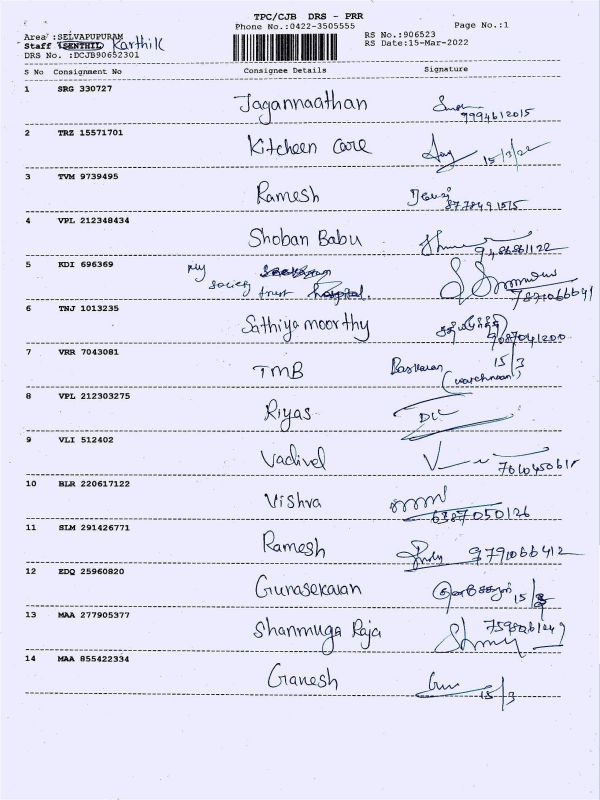 TPC/CJB DRS - PRR
Phone No.:0422-3505555 Page No.:1
Area :SELVAPUPURAM
Staff :SENTHIL Karthik
DRS No. :DCJB90652301
RS No.:906523
RS Date:15-Mar-2022
S No Consignment No Consignee Details Signature
1 SRG 330727 Jagannaathan
9994612015
2 TRZ 15571701 Kitcheen care 15/3/22
3 TVM 9739495 Ramesh
4 VPL 212348434 Shoban Babu
5 KDI 696369 My
society trust hospital.
6 TNJ 1013235 Sathiya moorthy
9087041200
7 VRR 7043081 TMB Baskaran 15/3
(watchman)
8 VPL 212303275 Riyas
9 VLI 512402 Vadivel
10 BLR 220617122 Vishva
6387050126
11 SLM 291426771 Ramesh 9791066412
12 EDQ 25960820 Gunasekaran குணசேகரன் 15/3
13 MAA 277905377 Shanmuga Raja
14 MAA 855422334 Ganesh 15/3